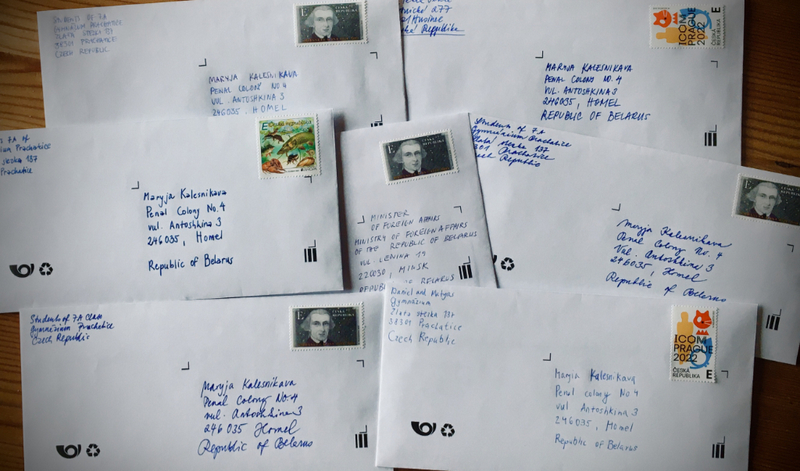 STUDENTS OF 7A
GYMNÁZIUM PRACHATICE
ZLATÁ STEZKA 137
38301 PRACHATICE
CZECH REPUBLIC
E
MARYJA KALESNIKAVA
PENAL COLONY NO 4
VUL. ANTOSHKINA 3
246035, HOMEL
277
Husinec
Republike
ICOM
PRAGUE
2022
ČESKÁ
REPUBLIKA
E
MARYJA KALESNIKAVA
PENAL COLONY NO. 4
VUL. ANTOSHKINA 3
246035, HOMEL
REPUBLIC OF BELARUS
7A of
Prachatice
stezka 137
Prachatice
E
Maryja Kalesnikava
Penal Colony No. 4
vul. Antoshkina 3
246035, Homel
Republic of Belarus
E
MINISTER
OF FOREIGN AFFAIRS
MINISTRY OF FOREIGN AFFAIRS
OF THE REPUBLIC OF BELARUS
VUL LENINA 19
220030, MINSK
OF BELARUS
Students of 7A
Gymnázium Prachatice
Zlatá stezka 137
Prachatice
Czech Republic
E
Maryja Kalesnikava
Penal Colony No. 4
Vul. Antoshkina 3
246035, Homel
Republic of Belarus
Students of 7A Class
Gymnázium Prachatice
Czech Republic
E
Maryja Kalesnikava
Penal Colony No. 4
vul. Antoshkina 3
246 035 Homel
Republic of Belarus
Daniel and Matyáš
Gymnázium
Zlatá stezka 137
38301 Prachatice
Czech Republic
ICOM
PRAGUE
2022
ČESKÁ
REPUBLIKA
E
Maryja Kalesnikava
Penal colony No 4
vul Antoshkina 3
246035, Homel
Republic of Belarus